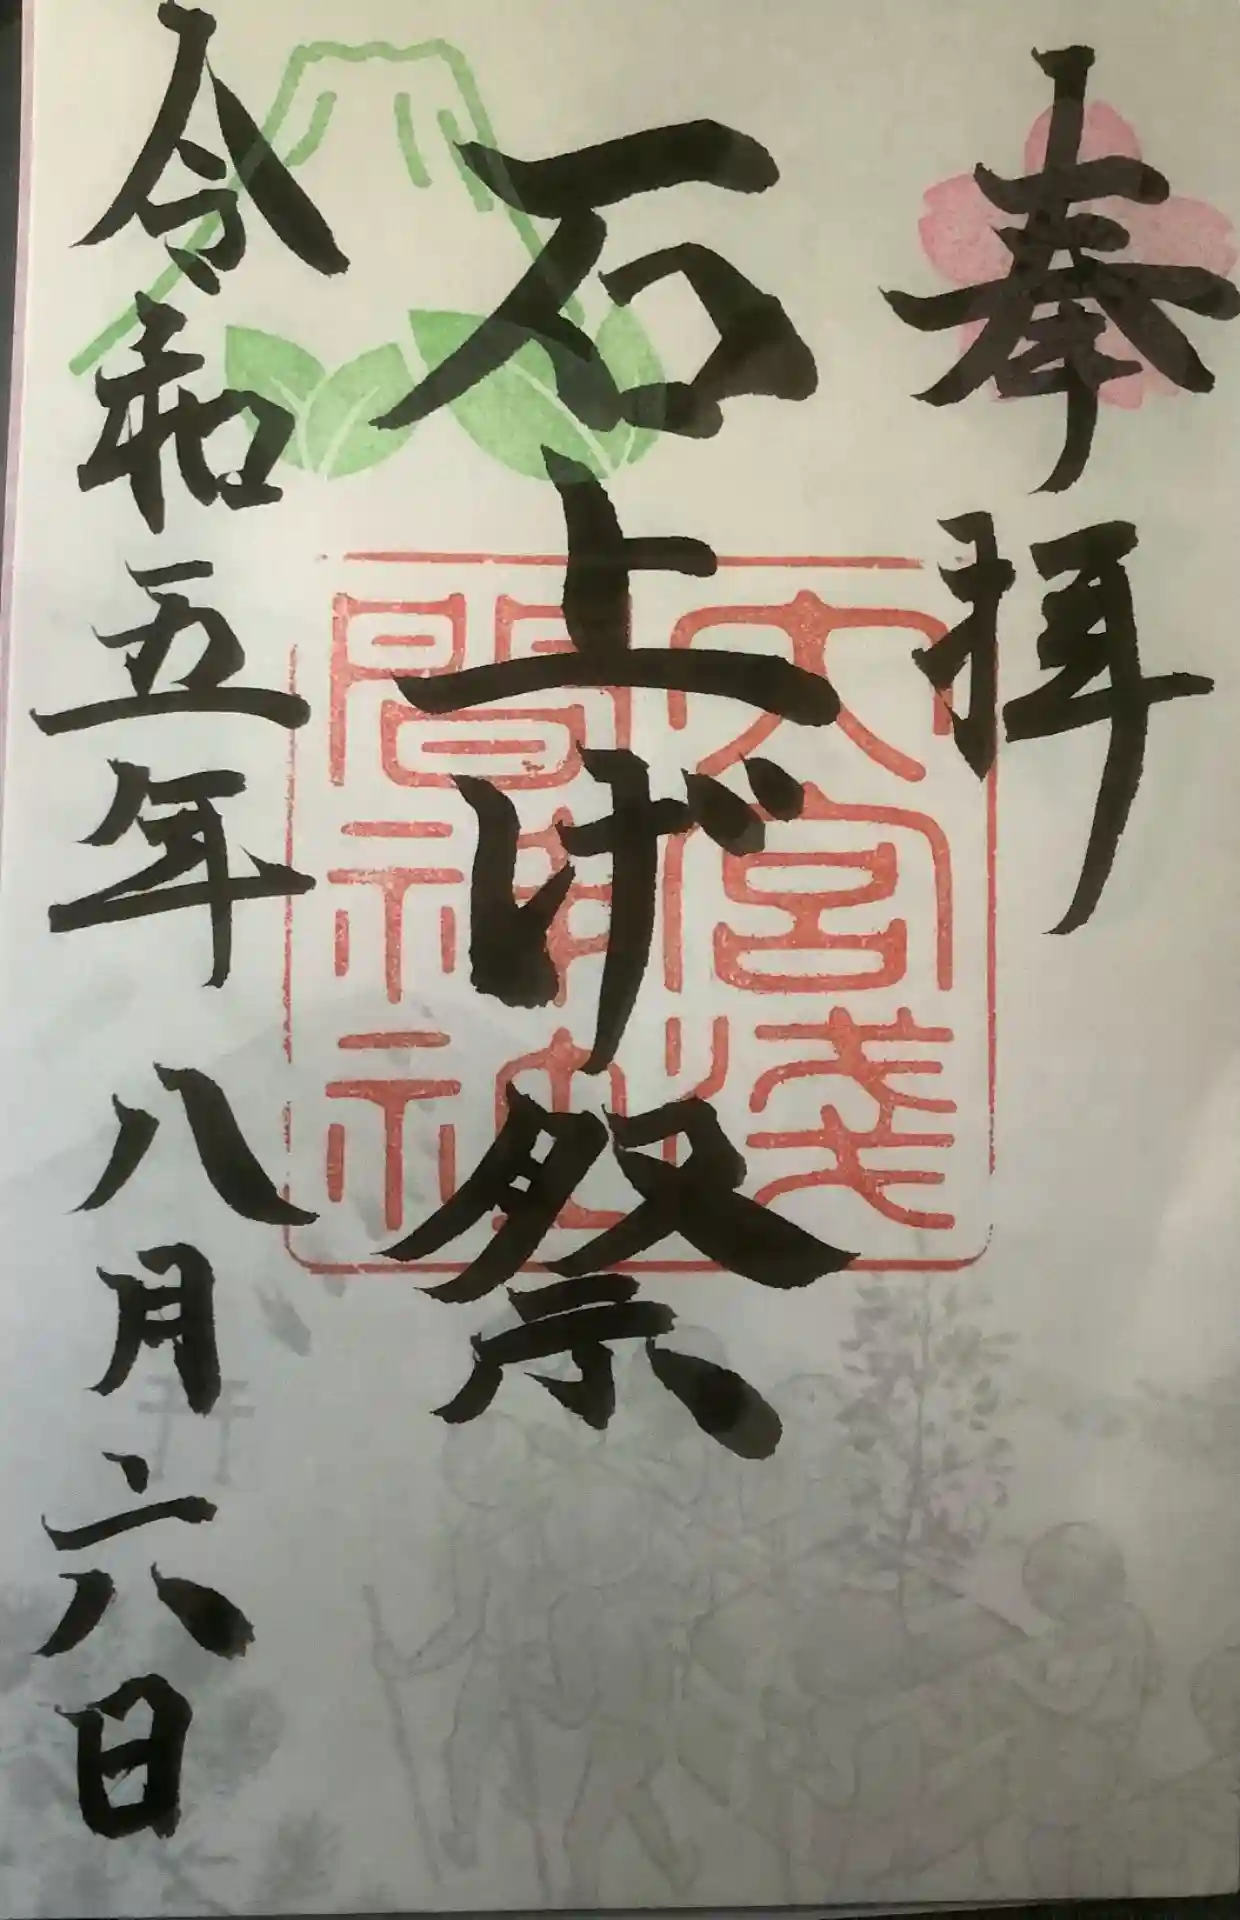 奉拝
石上げ祭
令和五年八月六日
大宮浅
間神社